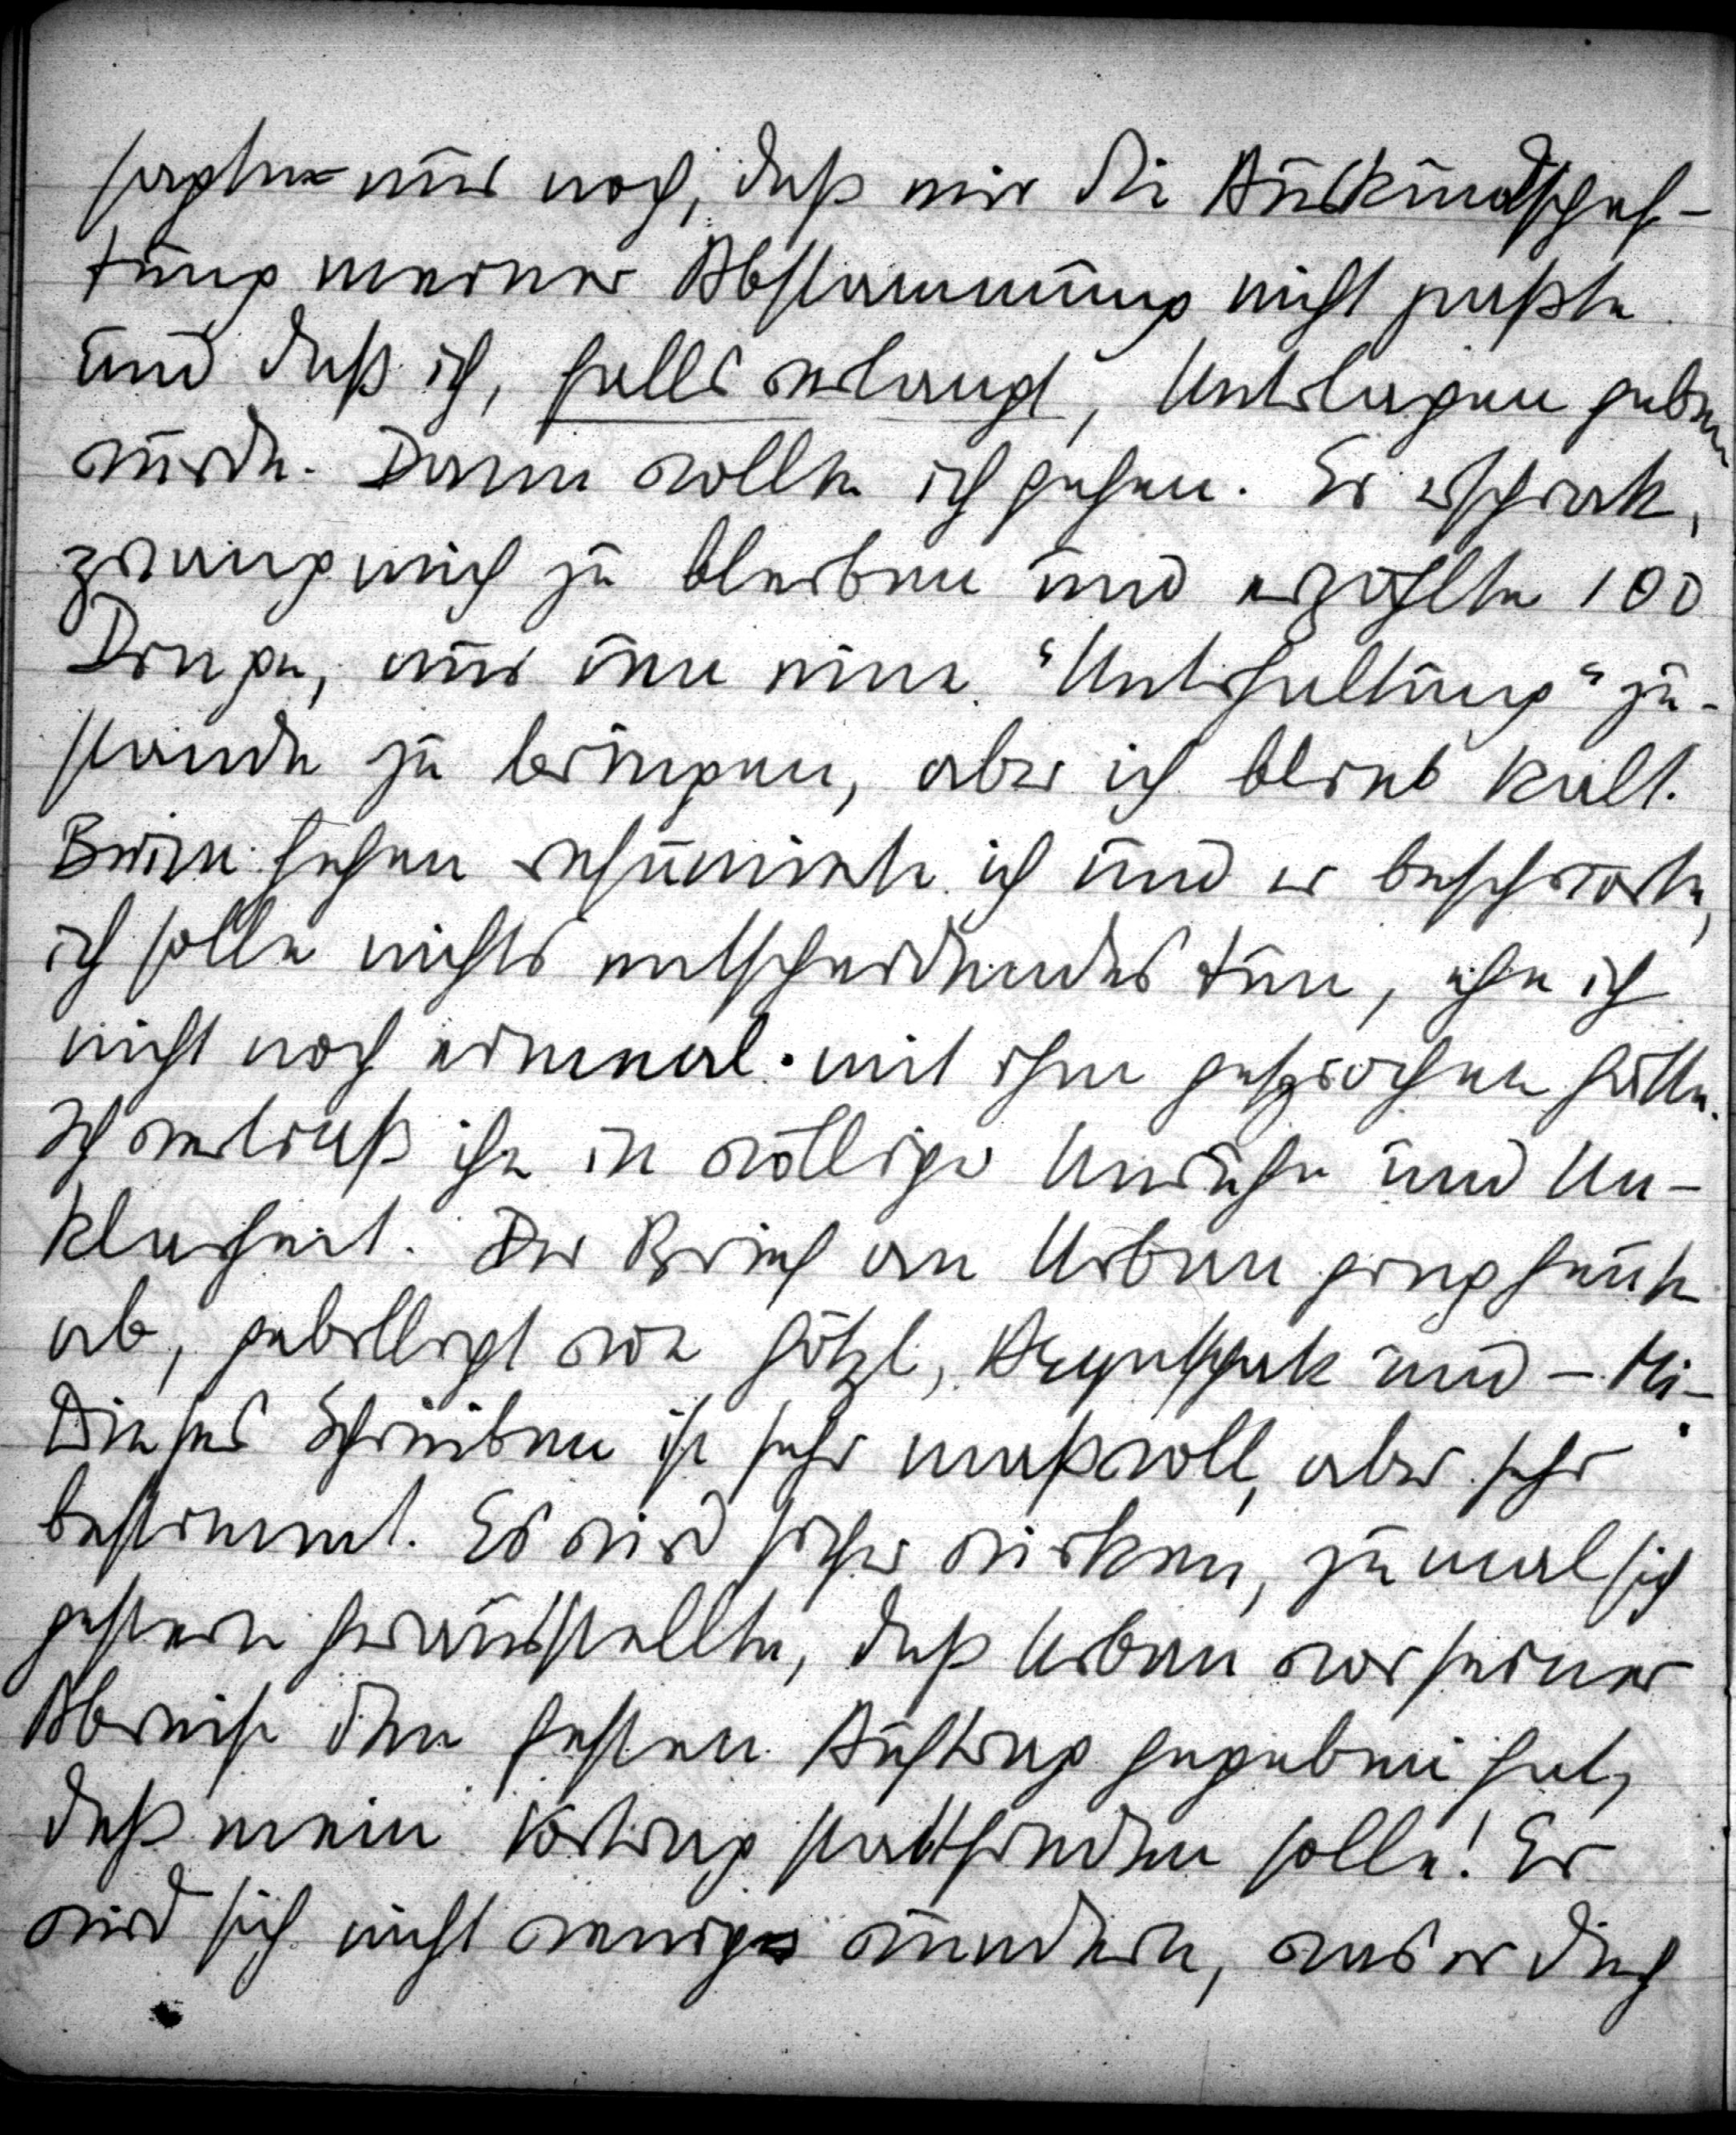 sagte nur noch, daß mir die Auskundschaf-
tung meiner Abstammung nicht paßte
und daß ich, falls verlangt, Unterlagen geben
würde. Dann wollte ich gehen. Er erschrak,
zwang mich zu bleiben und erzählte 100
Dinge, nur um eine "Unterhaltung" zu-
stande zu bringen, aber ich blieb kalt.
Beim Gehen resumierte ich und er beschwor
ich solle nichts entscheidendes tun, ehe ich
nicht noch einmal mit ihm gesprochen hätte.
Ich verließ ihn in völliger Unruhe und Un-
klarheit. Der Brief an Urban ging heute
ab, gebilligt von Hötzl, und – Mi.
Dieses Schreiben ist sehr maßvoll, aber sehr
bestimmt. Es wird sicher wirken, zumal sich
gestern herausstellte, daß Urban vor seiner
Abreise den festen Auftrag gegeben hat,
daß mein Vortrag stattfinden solle! Er
wird sich nicht wenig wundern, was er durch